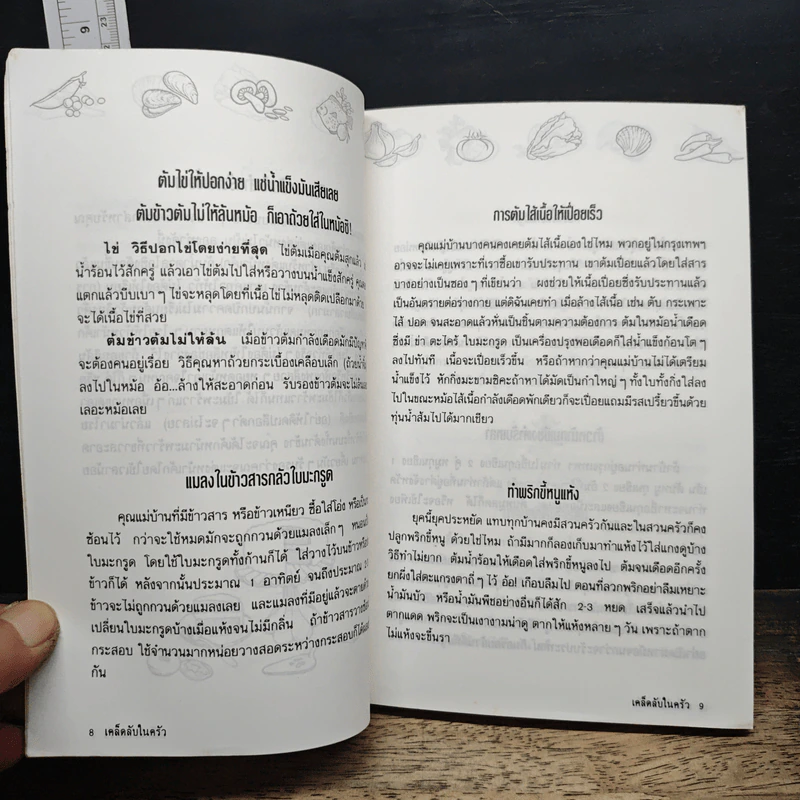 ต้มไข่ให้ปอกง่าย แช่น้ำแข็งมันเสียเลย
ต้มข้าวต้มไม่ให้ล้นหม้อ ก็เอาถ้วยใส่ในหม้อซิ!
ไข่ วิธีปอกไข่โดยง่ายที่สุด ไข่ต้มเมื่อคุณต้มสุกแล้ว
น้ำร้อนไว้สักครู่ แล้วเอาไข่ต้มไปใส่หรือวางบนน้ำแข็งสักครู่
แตกแล้วบีบเบา ๆ ไข่จะหลุดโดยที่เนื้อไข่ไม่หลุดติดเปลือกมาด้วย
จะได้เนื้อไข่ที่สวย
ต้มข้าวต้มไม่ให้ล้น เมื่อข้าวต้มกำลังเดือดมักมีปัญหา
จะต้องคนอยู่เรื่อย วิธีคุณหาถ้วยกระเบื้องเคลือบเล็ก
ลงไปในหม้อ อ้อ...ล้างให้สะอาดก่อน รับรองข้าวต้มจะไม่ล้นเลอะ
เลอะหม้อเลย
แมลงในข้าวสารกลัวใบมะกรูด
คุณแม่บ้านที่มีข้าวสาร หรือข้าวเหนียว ซื้อใส่โอ่ง หรือเป็น
ซ้อนไว้ กว่าจะใช้หมดมักจะถูกกวนด้วยแมลงเล็กๆ
ใบมะกรูด โดยใช้ใบมะกรูดทั้งก้านก็ได้ ใส่วางไว้บนข้าวหรือ
ข้าวก็ได้ หลังจากนั้นประมาณ 1 อาทิตย์ จนถึงประมาณ
ข้าวจะไม่ถูกกวนด้วยแมลงเลย และแมลงที่มีอยู่แล้วจะตาย
เปลี่ยนใบมะกรูดบ้างเมื่อแห้งจนไม่มีกลิ่น ถ้าข้าวสารวาง
กระสอบ ใช้จำนวนมากหน่อยวางสอดระหว่างกระสอบก็ได้
กัน
8 เคล็ดลับในครัว
การต้มไส้เนื้อให้เปื่อยเร็ว
คุณแม่บ้านบางคนคงเคยต้มไส้เนื้อเองใช่ไหม พวกอยู่ในกรุงเทพฯ
อาจจะไม่เคยเพราะที่เราซื้อเขารับประทาน เขาต้มเปื่อยแล้วโดยใส่สาร
บางอย่างเป็นซอง ๆ ที่เขียนว่า ผงช่วยให้เนื้อเปื่อยซึ่งรับประทานแล้ว
เป็นอันตรายต่อร่างกาย แต่ดิฉันเคยทำ เมื่อล้างไส้เนื้อ เช่น ตับ กระเพาะ
ไส้ ปอด จนสะอาดแล้วหั่นเป็นชิ้นตามความต้องการ ต้มในหม้อน้ำเดือด
ซึ่งมี ข่า ตะไคร้ ใบมะกรูด เป็นเครื่องปรุงพอเดือดก็ใส่น้ำแข็งก้อนโต ๆ
ลงไปทันที เนื้อจะเปื่อยเร็วขึ้น หรือถ้าหากว่าคุณแม่บ้านไม่ได้เตรียม
น้ำแข็งไว้ หักกิ่งมะขามซิคะถ้าหาได้มัดเป็นกำใหญ่ ๆ ทั้งใบทั้งกิ่งใส่ลง
ไปในขณะหม้อไส้เนื้อกำลังเดือดพักเดียวก็จะเปื่อยแถมมีรสเปรี้ยวขึ้นด้วย
ทุ่นน้ำส้มไปได้มากเชียว
ทำพริกขี้หนูแห้ง
ยุคนี้ยุคประหยัด แทบทุกบ้านคงมีสวนครัวกันและในสวนครัวก็คง
ปลูกพริกขี้หนู ด้วยใช่ไหม ถ้ามีมากก็ลองเก็บมาทำแห้งไว้ใส่แกงดูบ้าง
วิธีทำไม่ยาก ต้มน้ำร้อนให้เดือดใส่พริกขี้หนูลงไป ต้มจนเดือดอีกครั้ง
ยกผึ่งใส่ตะแกรงตาถี่ๆ ไว้ อ้อ! เกือบลืมไป ตอนที่ลวกพริกอย่าลืมเหยาะ
น้ำมันบัว หรือน้ำมันพืชอย่างอื่นก็ได้สัก 2-3 หยด เสร็จแล้วนำไป
ตากแดด พริกจะเป็นเงางามน่าดู ตากให้แห้งหลายๆ วัน เพราะถ้าตาก
ไม่แห้งจะขึ้นรา
เคล็ดลับในครัว 9